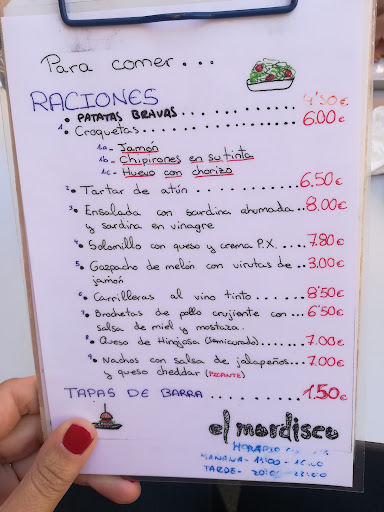 Para comer...
RACIONES
• PATATAS BRAVAS.............. 4'50€
1• Croquetas.................... 6.00€
1a- Jamón
1b- Chipirones en su tinta
1c- Huevo con chorizo
2• Tartar de atún............... 6.50€
3• Ensalada con sardina ahumada.. 8.00€
y sardina en vinagre
4• Solomillo con queso y crema P.X..... 7.80€
5• Gazpacho de melón con virutas de... 3.00€
jamón
6• Carrilleras al vino tinto....... 8'50€
7• Brochetas de pollo crujiente con... 6'50€
salsa de miel y mostaza.
8• Queso de Hinojosa (Semicurado)...... 7.00€
9• Nachos con salsa de jalapeños... 7.00€
y queso cheddar (PICANTE)
TAPAS DE BARRA .............. 1.50€
el mordisco
HORARIO
MAÑANA-
TARDE-